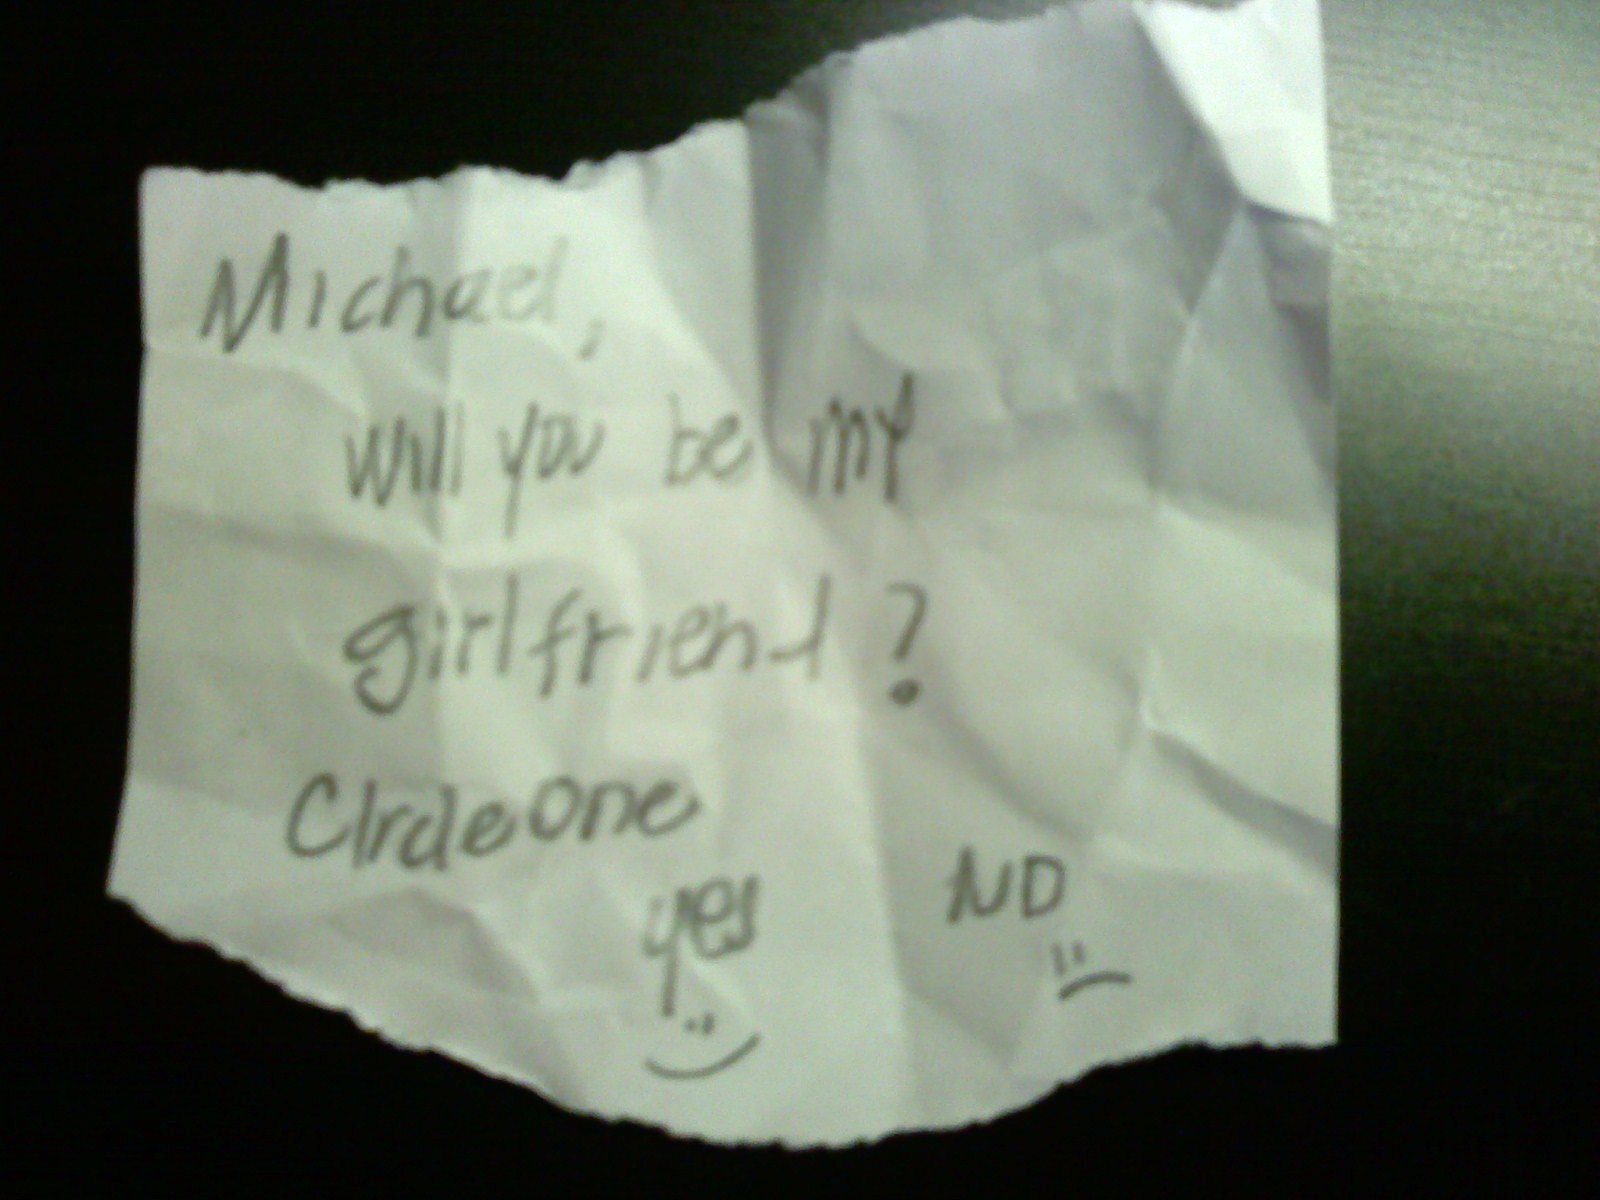 Michael,
will you be my
girlfriend?
Circle one
yes NO